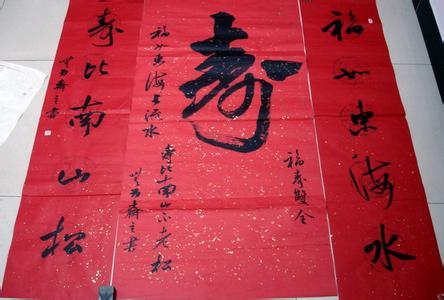 福如东海水
福寿雙全
寿
福如东海长流水
寿比南山不老松
斋主书
寿比南山松
斋主书